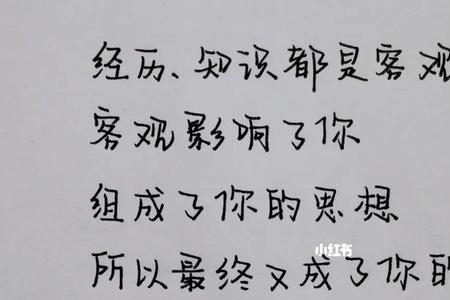 经历、知识都是客观
客观影响了你
组成了你的思想
小红书
所以最终又成了你的